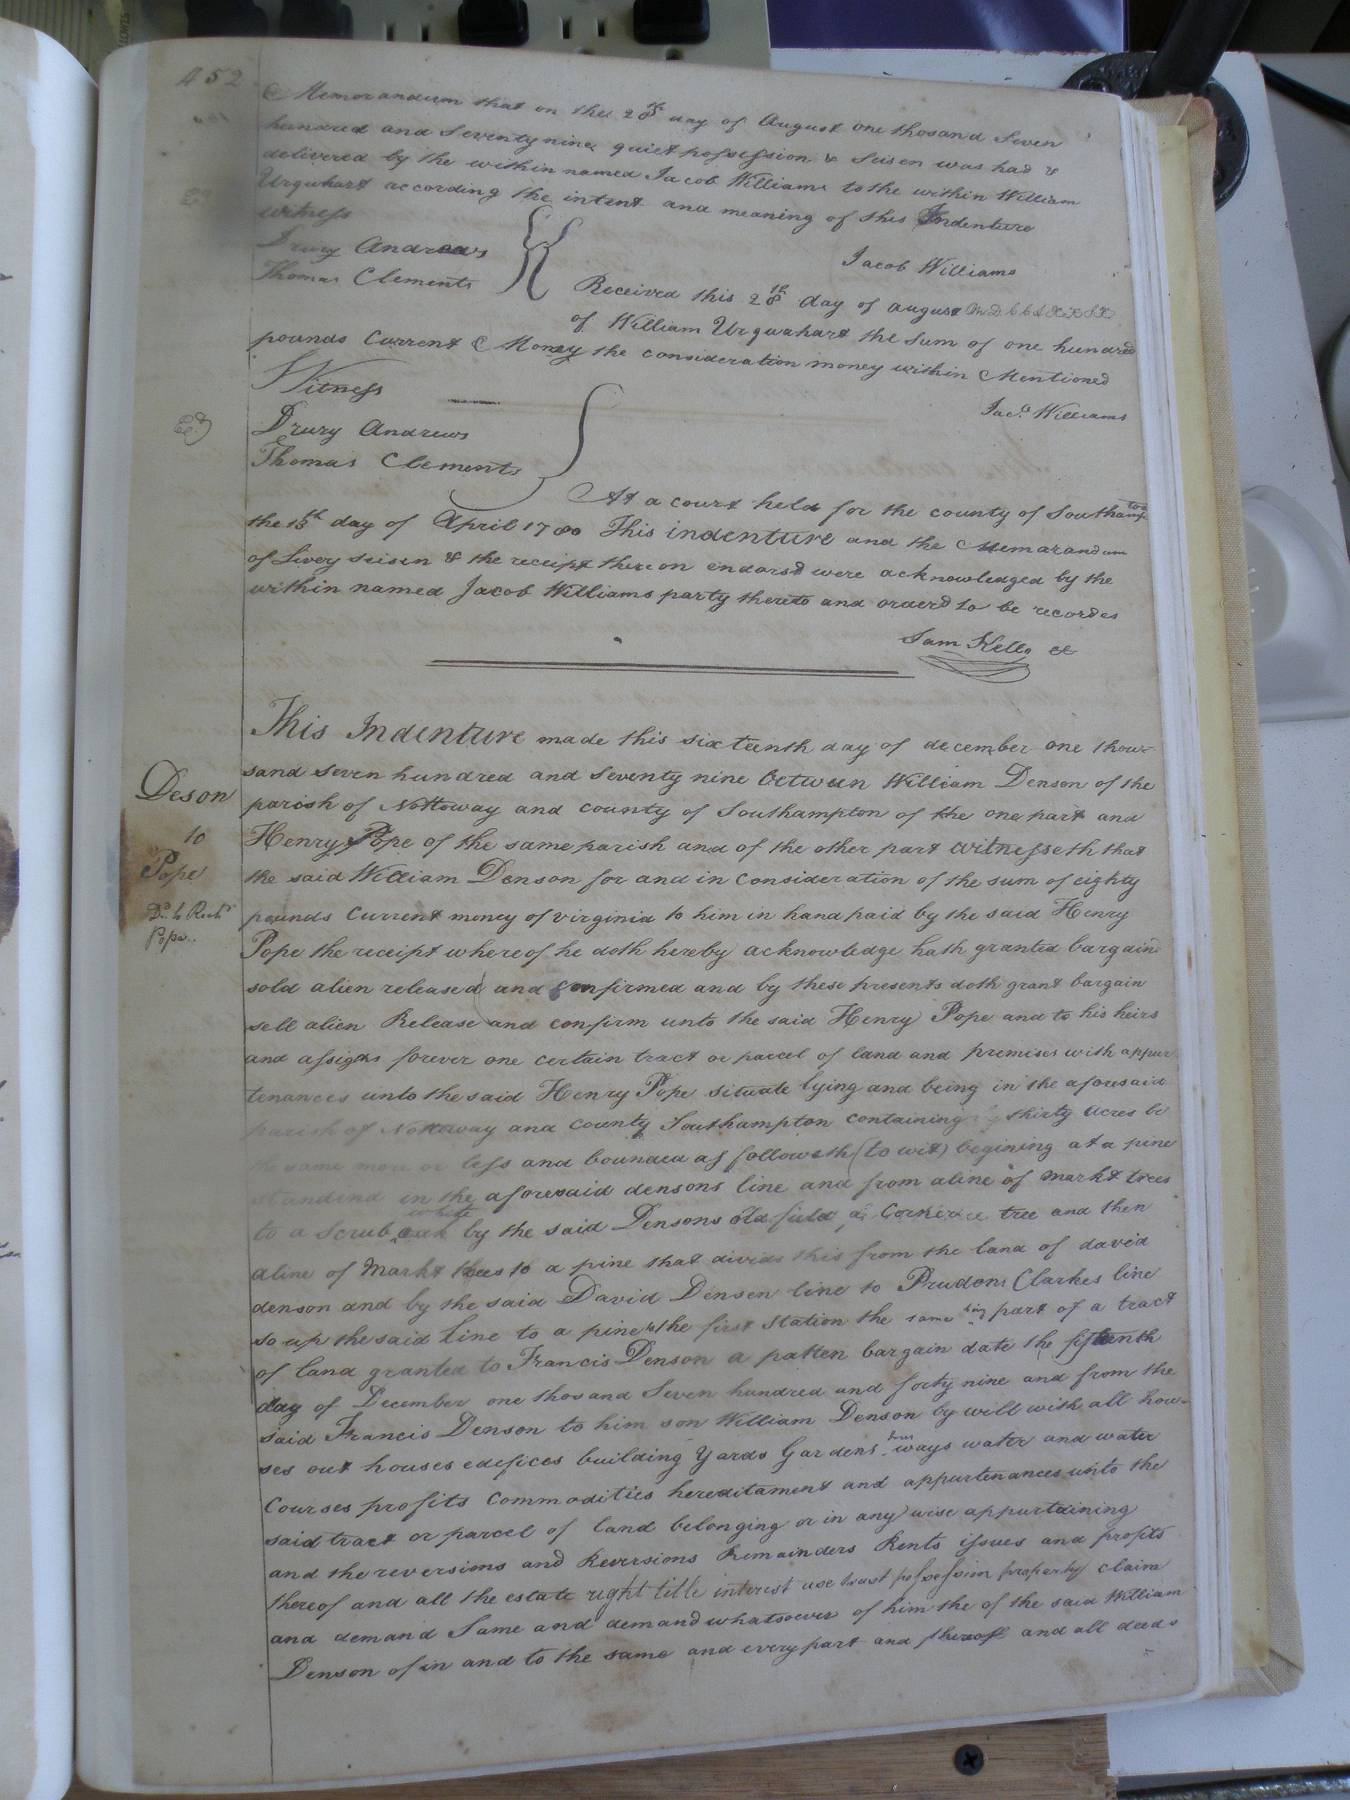 452
Memorandum that on the 28th day of August one thosand Seven
hundred and Seventy nine quiet possession & Seisen was had &
delivered by the within named Jacob Williams to the within William
Urquhart according the intent and meaning of this Indenture
witness
Drury Andrews
Thomas Clements
Jacob Williams
Received this 28th day of august
of William Urquahart the Sum of one hundred
pounds Current Money the consideration money within Mentioned
Witness
Jaco. Williams
Drury Andrews
Thomas Clements
At a court held for the county of Southampton
the 13th day of April 1780 This indenture and the Memorandum
of Livery seisen & the receipt thereon endorsd were acknowledged by the
within named Jacob Williams party thereto and orderd to be recorded
Sam Kello
This Indenture made this sixteenth day of december one thow-
sand seven hundred and seventy nine between William Denson of the
parish of Nottoway and county of Southampton of the one part and
Henry Pope of the same parish and of the other part witnesseth that
the said William Denson for and in consideration of the sum of eighty
pounds Current money of virginia to him in hand paid by the said Henry
Pope the receipt whereof he doth hereby acknowledge hath granted bargain
sold alien released and confirmed and by these presents doth grant bargain
sell alien Release and confirm unto the said Henry Pope and to his heirs
and assigns forever one certain tract or parcel of land and premises with appur
tenances unto the said Henry Pope situate lying and being in the aforesaid
parish of Nottoway and county Southampton containing thirty acres be
the same more or less and bounded as followeth (to wit) begining at a pine
standind in the aforesaid densons line and from aline of markt trees
to a scrub white oak by the said Densons old field a Corner tree and then
aline of markt trees to a pine that divids this from the land of david
denson and by the said David Denson line to Prudens Clarkes line
so up the said line to a pine the first station the same being part of a tract
of land granted to Francis Denson a patten bargain date the fifteenth
day of December one thosand Seven hundred and forty nine and from the
said Francis Denson to him son William Denson by will with all how-
ses out houses edifices building Yards Gardens ways water and water
Courses profits Commodities hereditament and appurtenances unto the
said tract or parcel of land belonging or in any wise appurtaining
and the reversions and Reversions Remainders Rents issues and profits
thereof and all the estate right title interest use trust possession property claim
and demand Same and demand whatsoever of him the of the said William
Denson of in and to the same and every part and thereof and all deeds
Deson
to
Pope
Pope